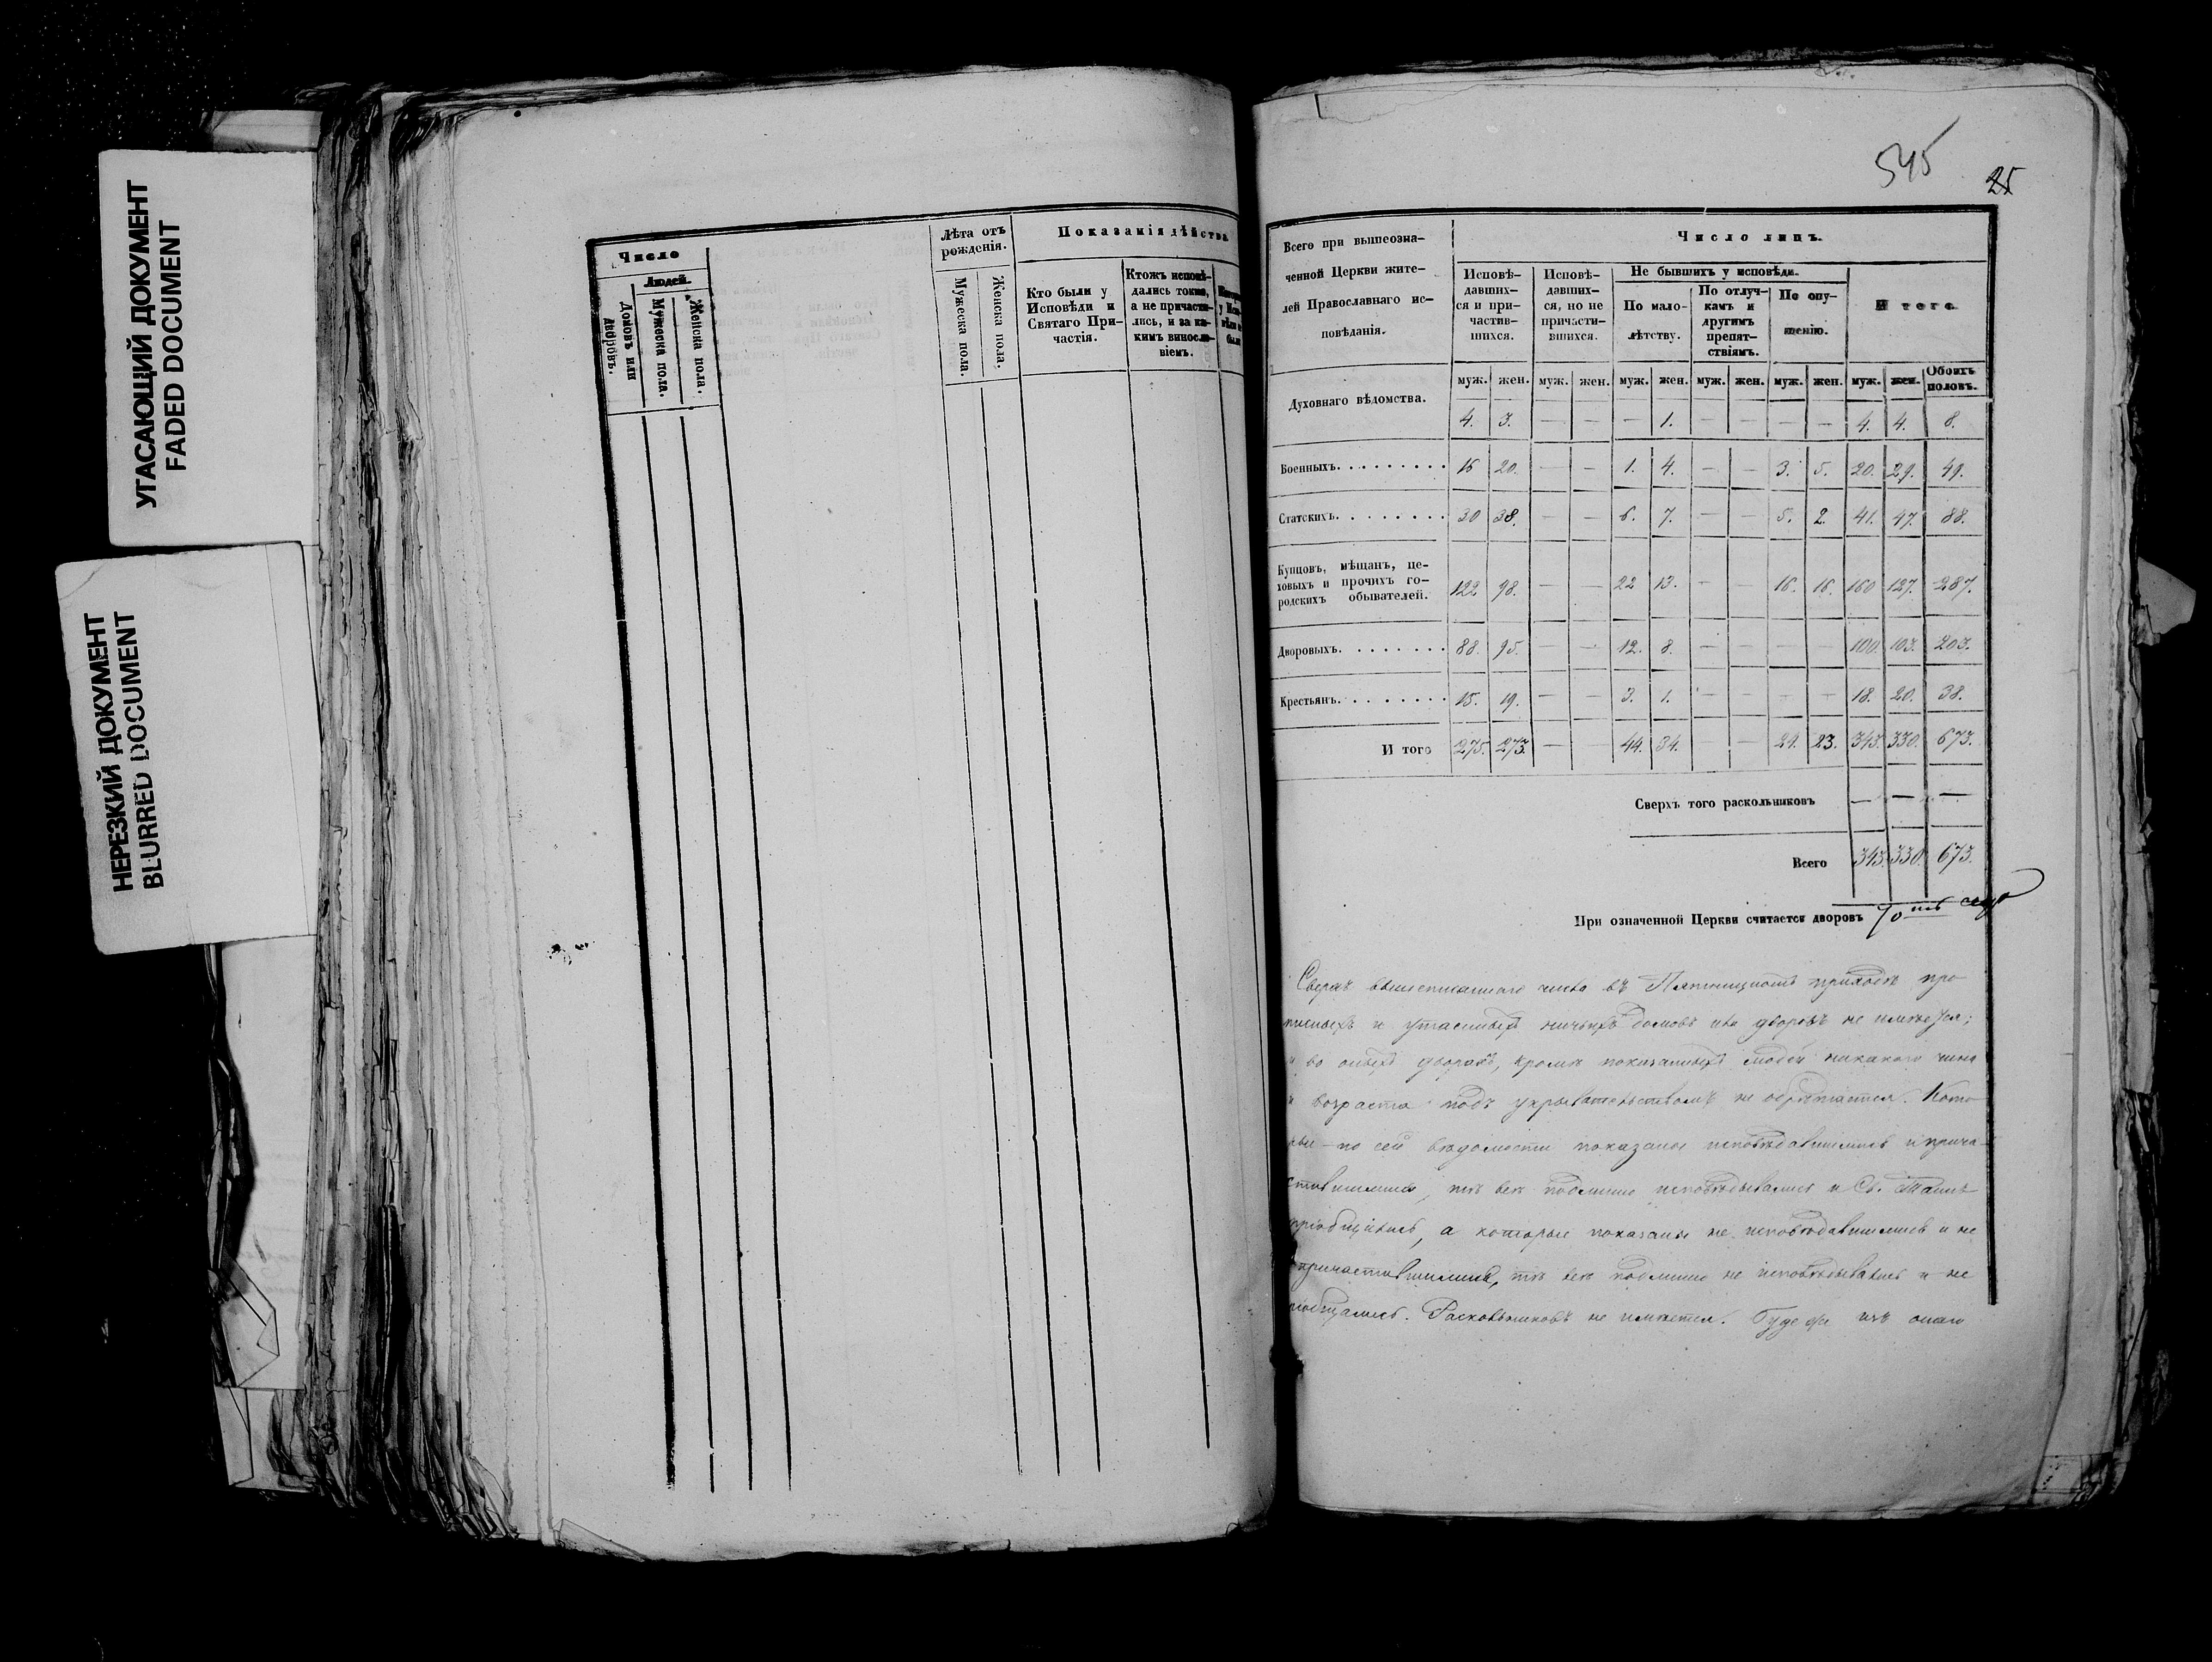 УГАСАЮЩИЙ ДОКУМЕНТ
FADED DOCUMENT
НЕРЕЗКИЙ ДОКУМЕНТ
BLURRED DOCUMENT
Число
Людей.
Домовъ или дворовъ.
Мужеска пола.
Женска пола.
Лѣта отъ
рожденія.
Мужеска пола.
Женска пола.
Показанія дѣйства
Кто были у
Исповѣди и
Святаго При-
частія.
Ктожъ исповѣ-
дались токмо,
а не причасти-
лись, и за ка-
кимъ виносло-
віемъ.
545
25
Всего при вышеозна-
ченной Церкви жите-
лей Православнаго ис-
повѣданія.
Число лицъ.
Исповѣ-
давших-
ся и при-
частив-
шихся.
Исповѣ-
давших-
ся, но не
причасти-
вшихся.
Не бывшихъ у исповѣди.
По мало-
лѣтству.
По отлуч-
камъ и
другимъ
препят-
ствіямъ.
По опу-
щенію.
И того.
муж. жен. муж. жен. муж. жен. муж. жен. муж. жен. муж. жен. Обоихъ половъ.
Духовнаго вѣдомства. 4. 3. — — — 1. — — — — 4. 4. 8.
Военныхъ. 16 20. — — 1. 4. — — 3. 5. 20. 29. 49.
Статскихъ. 30 38. — — 6. 7. — — 5. 2. 41. 47. 88.
Купцовъ, мѣщанъ, це-
ховыхъ и прочихъ го-
родскихъ обывателей. 122 98. — — 22 13. — — 16. 16. 160 127. 287.
Дворовыхъ. 88. 95. — — 12. 8. — — — — 100. 103. 203.
Крестьянъ. 15. 19. — — 3. 1. — — — — 18. 20. 38.
И того 275. 273. — — 44. 34. — — 24. 23. 343. 330. 673.
Сверхъ того раскольниковъ — — —
Всего 343. 330. 673.
При означенной Церкви считается дворовъ 70
Сверхъ вышеписаннаго числа въ Пятницкомъ приходѣ про
писныхъ и утаенныхъ ничьихъ домовъ или дворовъ не имѣется;
и во оныхъ дворахъ, кромѣ показанныхъ людей никакого чина
и возраста подъ укрывательствомъ не обрѣтается. Кото
рые по сей вѣдомости показаны исповѣдавшимися и прича-
стившимися, тѣ всѣ подлинно исповѣдывались и Св. Таинъ
пріобщились, а которые показаны не исповѣдавшимися и не
причастившимися, тѣ всѣ подлинно не исповѣдывались и не
ріобщались. Раскольниковъ не имѣется. Буде же изъ онаго